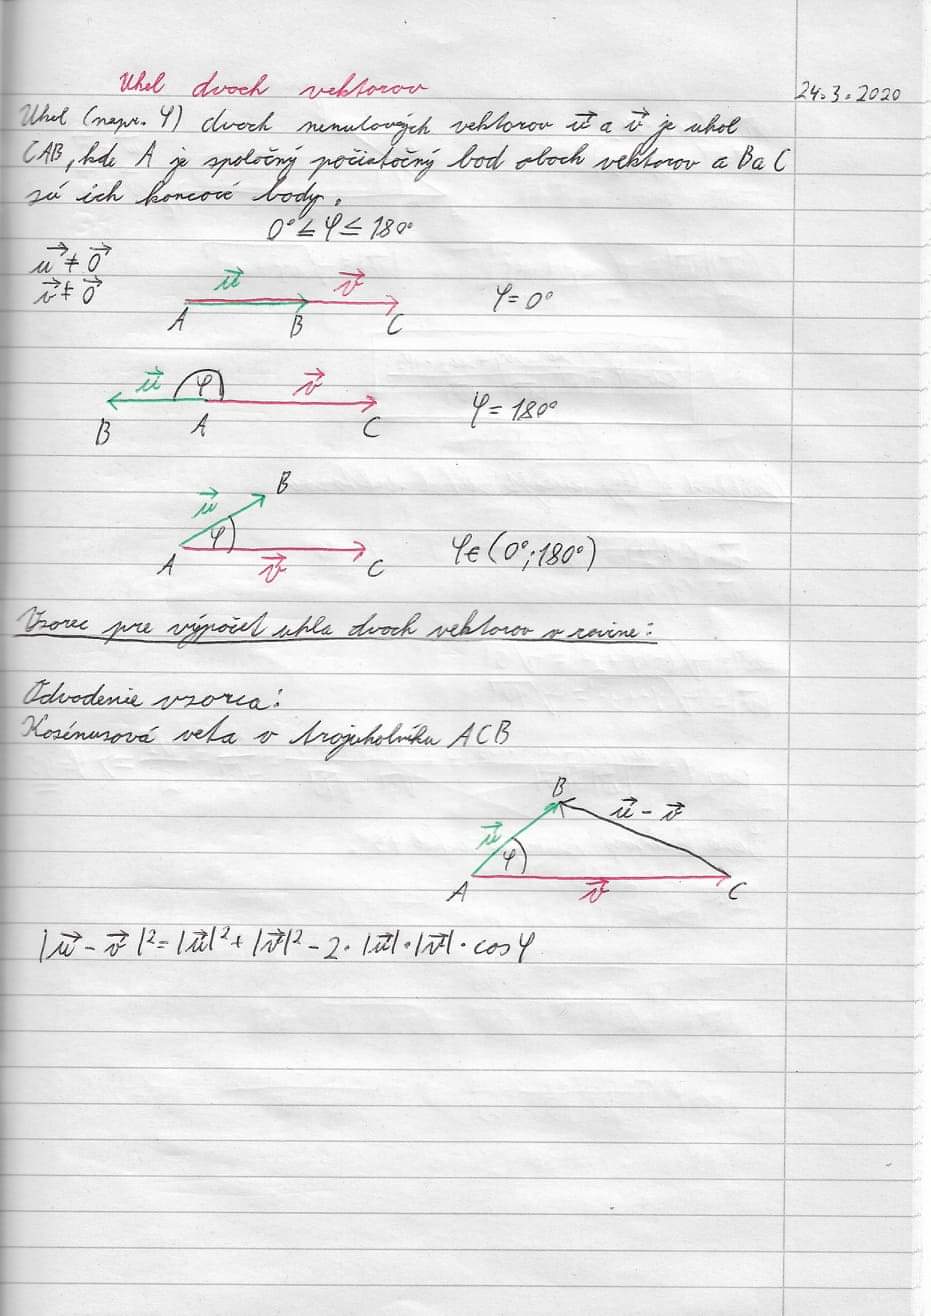 Uhol dvoch vektorov
24.3.2020
Uhol (napr. φ) dvoch nenulových vektorov u⃗ a v⃗ je uhol
CAB, kde A je spoločný počiatočný bod oboch vektorov a B a C
sú ich koncové body.
0° ≤ φ ≤ 180°
u⃗ ≠ 0⃗
v⃗ ≠ 0⃗
u⃗ v⃗
A B C
φ = 0°
u⃗ φ v⃗
B A C
φ = 180°
B
u⃗
φ
A v⃗ C
φ ∈ (0°; 180°)
Vzorec pre výpočet uhla dvoch vektorov v rovine:
Odvodenie vzorca:
Kosínusová veta v trojuholníku ACB
B
u⃗ - v⃗
u⃗
φ
A v⃗ C
|u⃗ - v⃗|² = |u⃗|² + |v⃗|² - 2 · |u⃗| · |v⃗| · cos φ